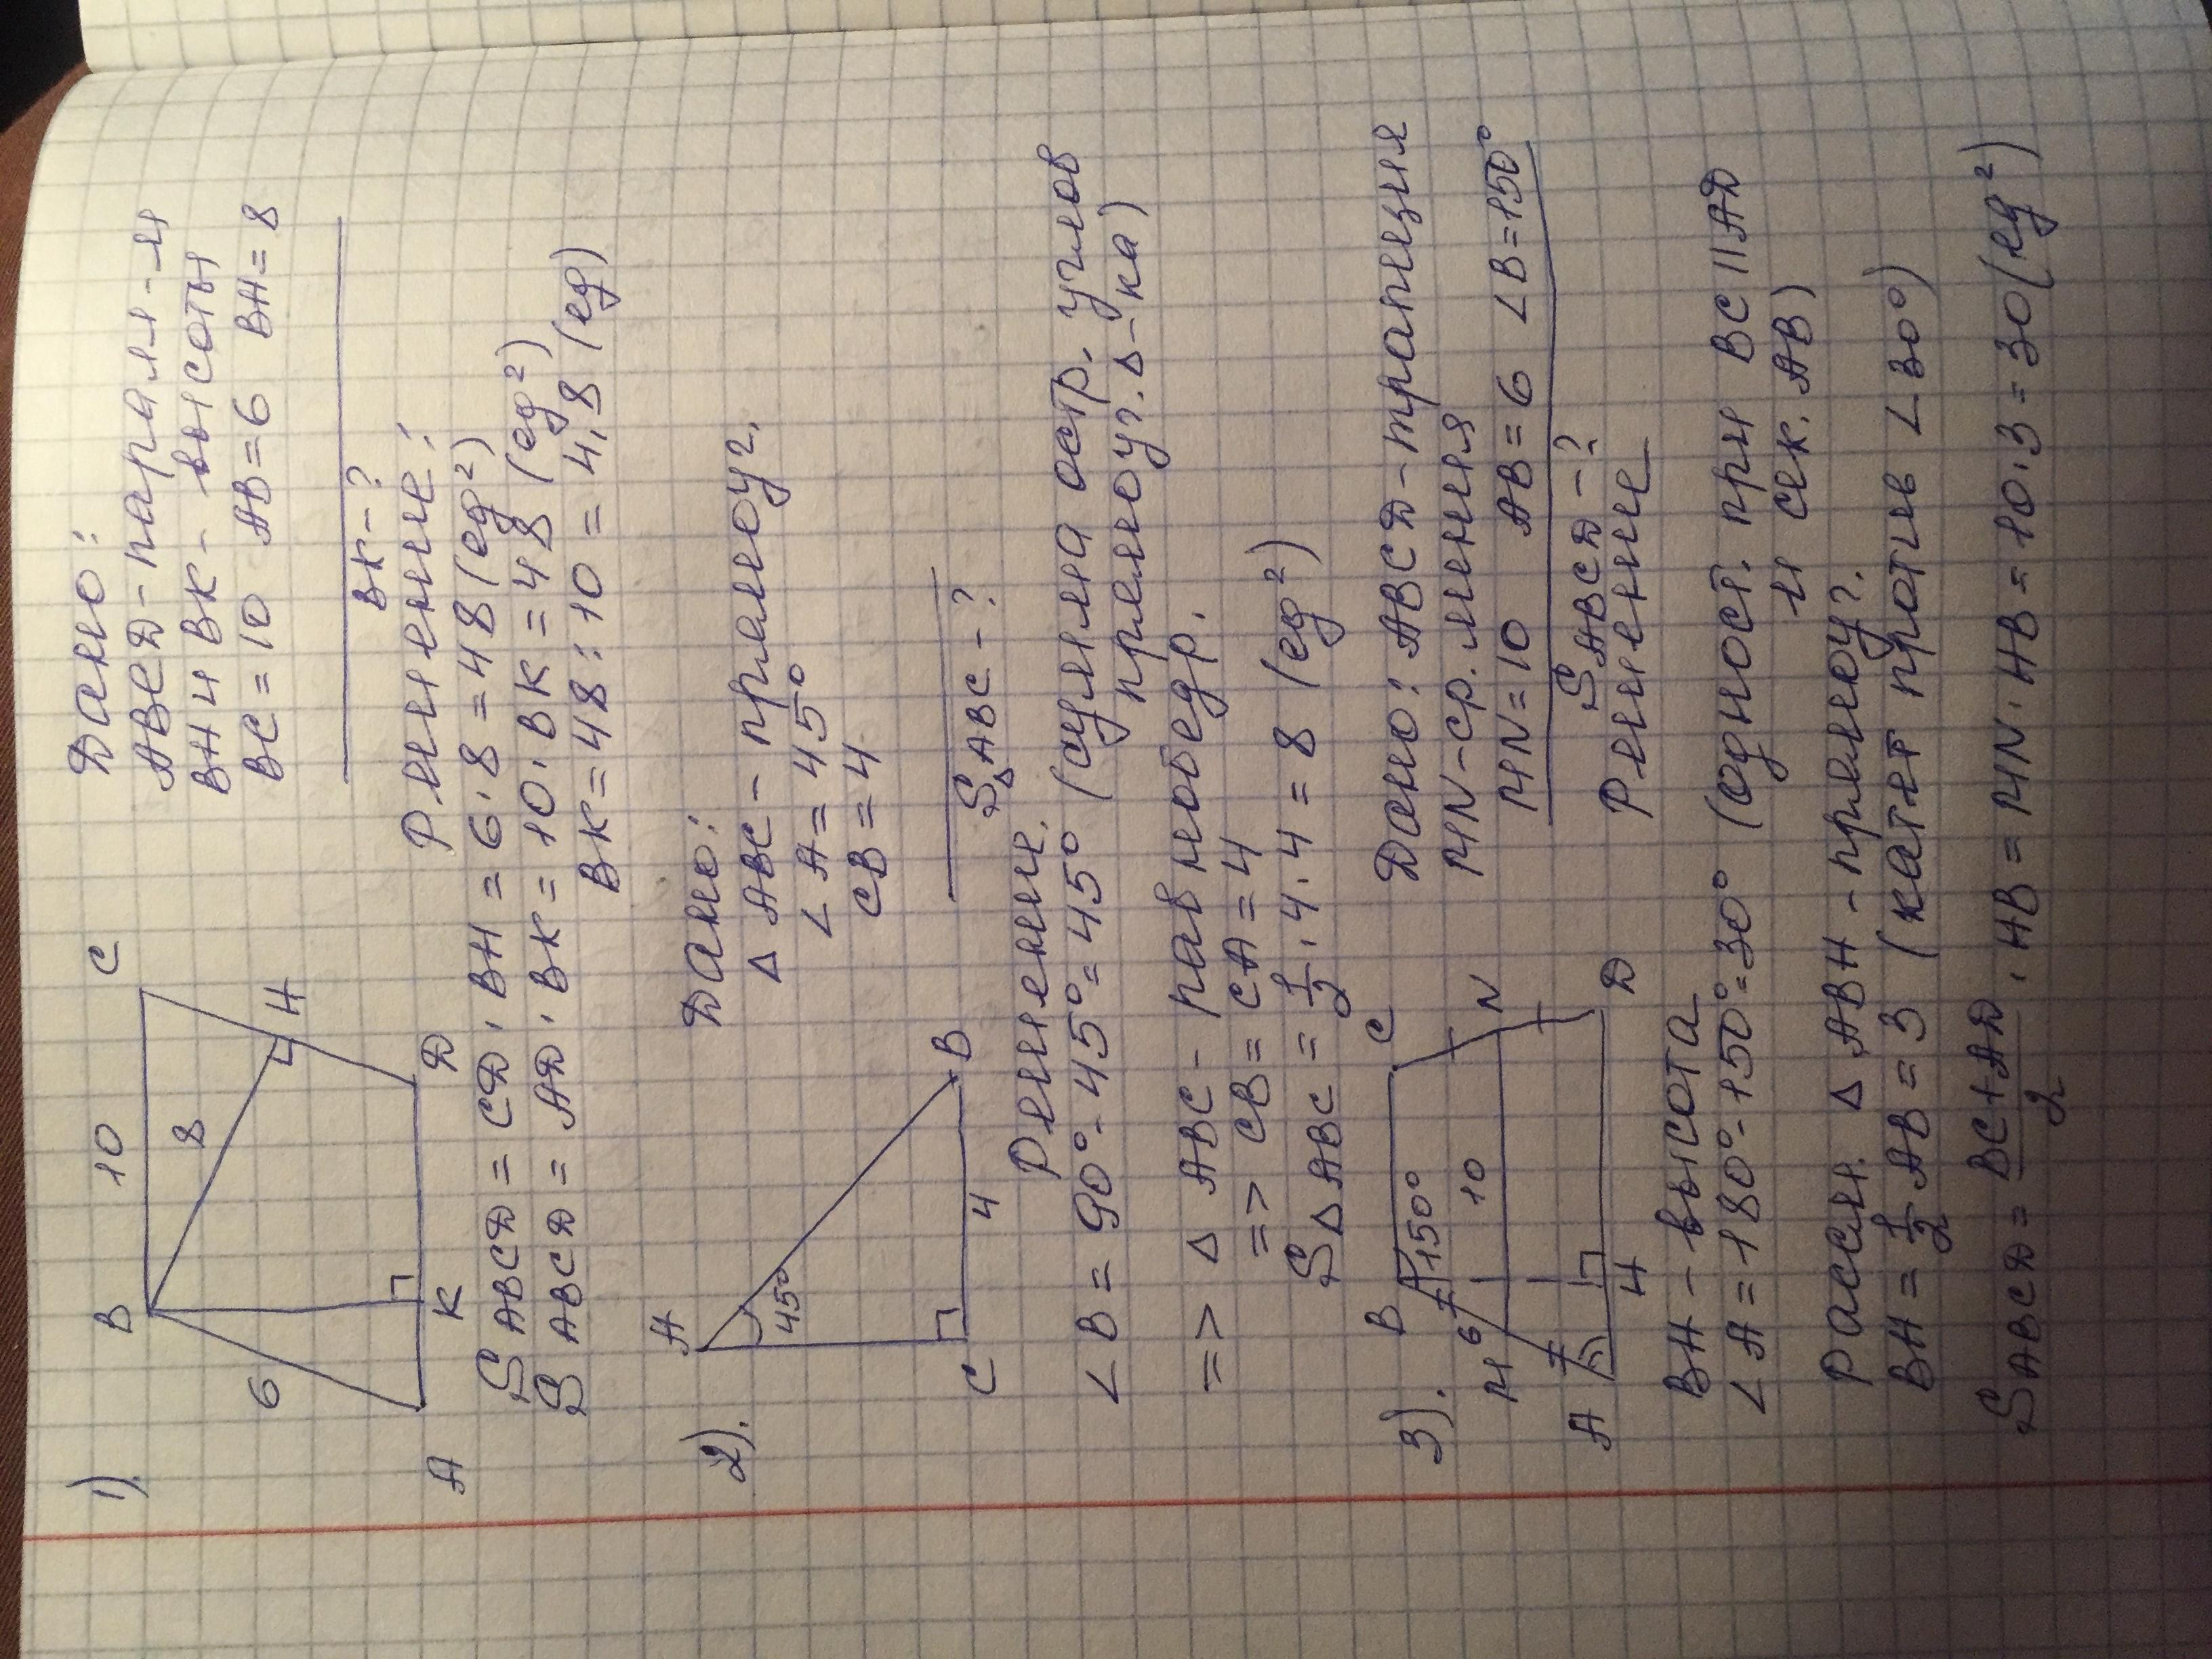 1).
B 10 C
8
6
H
A K D
Дано:
ABCD - парал-м
BH и BK - высоты
BC = 10 AB = 6 BH = 8
BK - ?
Решение:
S ABCD = CD · BH = 6 · 8 = 48 (ед²)
S ABCD = AD · BK = 10 · BK = 48 (ед²)
BK = 48 : 10 = 4,8 (ед)
2).
A
45°
C 4 B
Дано:
Δ ABC - прямоуг.
∠ A = 45°
CB = 4
S Δ ABC - ?
Решение.
∠ B = 90° - 45° = 45° (сумма остр. углов
прямоуг. Δ-ка)
=> Δ ABC - равнобедр.
=> CB = CA = 4
S Δ ABC = 1/2 · 4 · 4 = 8 (ед²)
3).
B C
150°
6
M 10 N
A H D
Дано: ABCD - трапеция
MN - ср. линия
MN = 10 AB = 6 ∠B = 150°
S ABCD - ?
Решение
BH - высота
∠ A = 180° - 150° = 30° (одност. при BC || AD
и сек. AB)
Рассм. Δ ABH - прямоуг.
BH = 1/2 AB = 3 (катет против ∠ 30°)
S ABCD = BC + AD / 2 · HB = MN · HB = 10 · 3 = 30 (ед²)